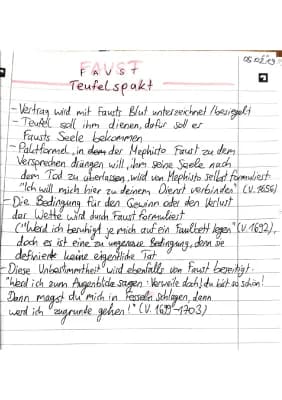 05.02.19
FAUST
FAUST
Teufelspakt
- Vertrag wird mit Fausts Blut unterzeichnet/besiegelt
- Teufel soll ihm dienen, dafür soll er
Fausts Seele bekommen
- Paktformel, in dem der Mephisto Faust zu dem
Versprechen drängen will, ihm seine Seele nach
dem Tod zu überlassen, wird von Mephisto selbst formuliert
"Ich will mich hier zu deinem Dienst verbinden" (V. 1656)
- Die Bedingung für den Gewinn oder den Verlust
der Wette wird durch Faust formuliert
("Werd ich beruhigt je mich auf ein Faulbett legen" (V. 1692),
doch es ist eine zu ungenaue Bedingung, denn sie
definierte keine eigentliche Tat
- Diese Unbestimmtheit wird ebenfalls von Faust beseitigt.
"Werd ich zum Augenblicke sagen: Verweile doch! du bist so schön!
Dann magst du mich in Fesseln schlagen, dann
werd ich zugrunde gehen!" (V. 1699-1703)